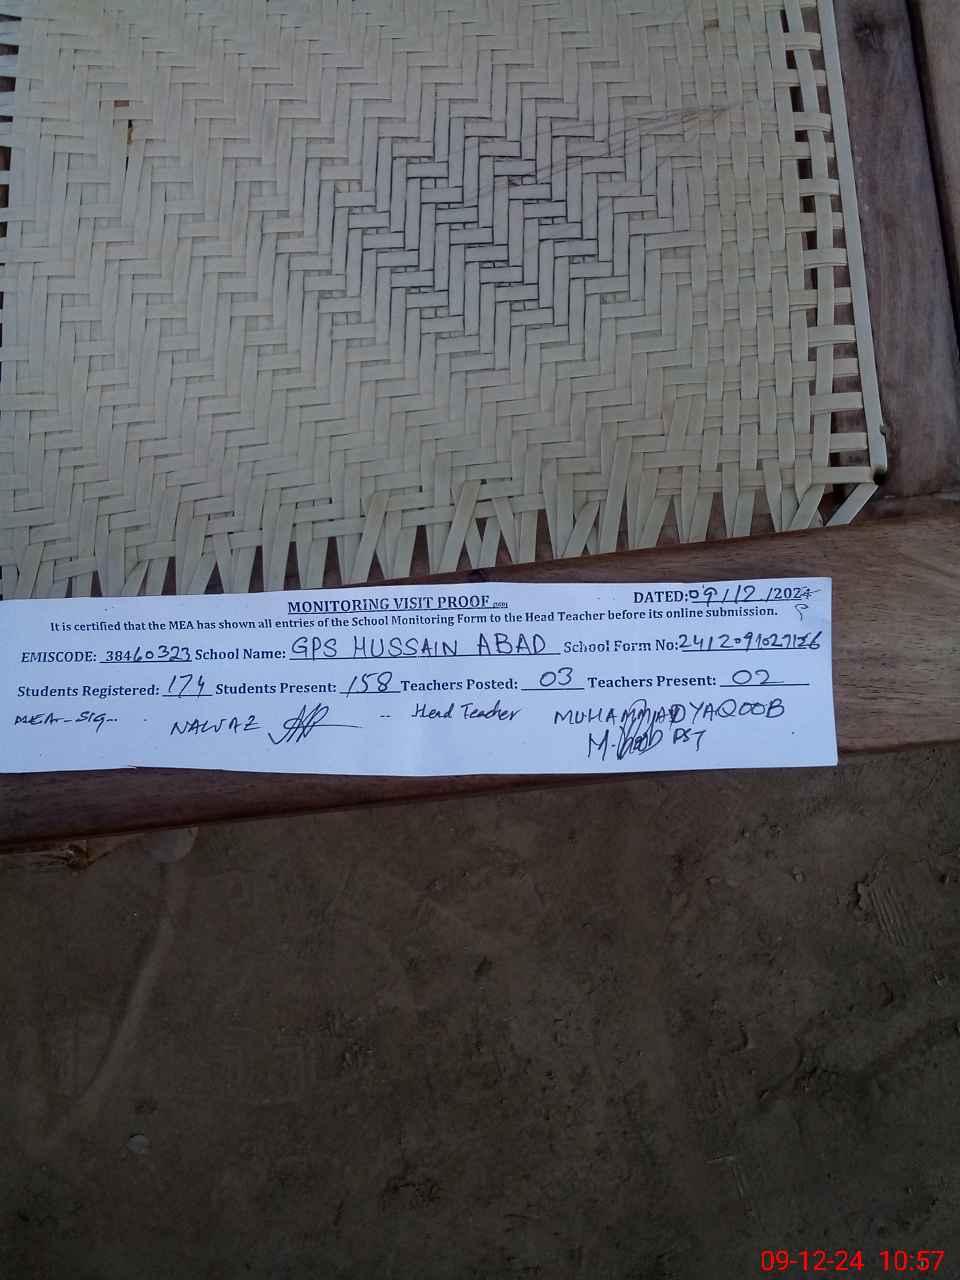 MONITORING VISIT PROOF DATED: 09/12/2024
It is certified that the MEA has shown all entries of the School Monitoring Form to the Head Teacher before its online submission.
EMISCODE: 38460323 School Name: GPS HUSSAIN ABAD School Form No: 2412091027126
Students Registered: 174 Students Present: 158 Teachers Posted: 03 Teachers Present: 02
MEA-Sig-- NAWAZ -- Head Teacher MUHAMMAD YAQOOB
PST
09-12-24 10:57